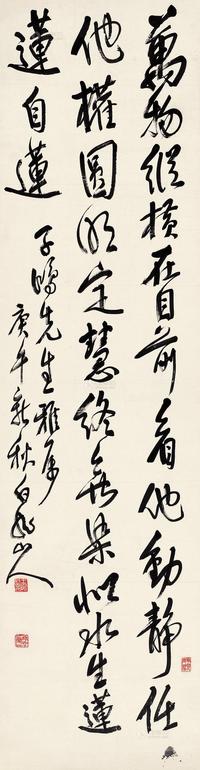 萬物縱橫在目前看他動靜任
他權圓明定慧終無染似水生蓮
蓮自蓮
子鳴先生雅屬
庚午新秋白龍山人